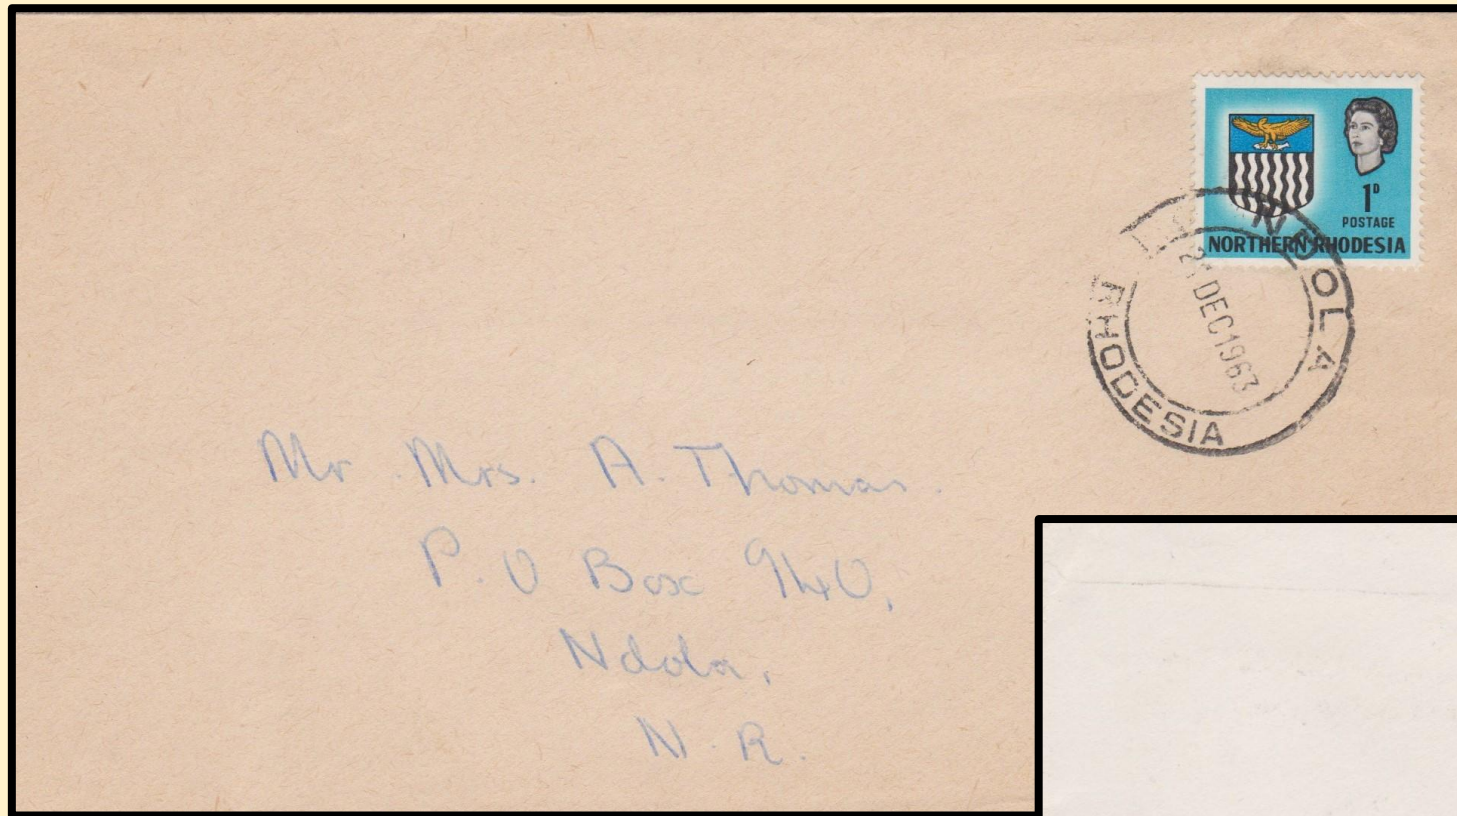 1D
POSTAGE
NORTHERN RHODESIA
NDOLA
21 DEC 1963
RHODESIA
Mr. Mrs. A. Thomas.
P.O Box 940,
Ndola,
N.R.